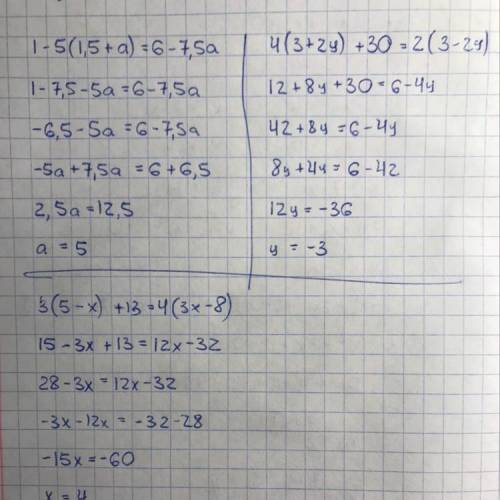 1-5(1,5+a)=6-7,5a
1-7,5-5a=6-7,5a
-6,5-5a=6-7,5a
-5a+7,5a=6+6,5
2,5a=12,5
a=5
4(3+2y)+30=2(3-2y)
12+8y+30=6-4y
42+8y=6-4y
8y+4y=6-42
12y=-36
y=-3
3(5-x)+13=4(3x-8)
15-3x+13=12x-32
28-3x=12x-32
-3x-12x=-32-28
-15x=-60
x=4